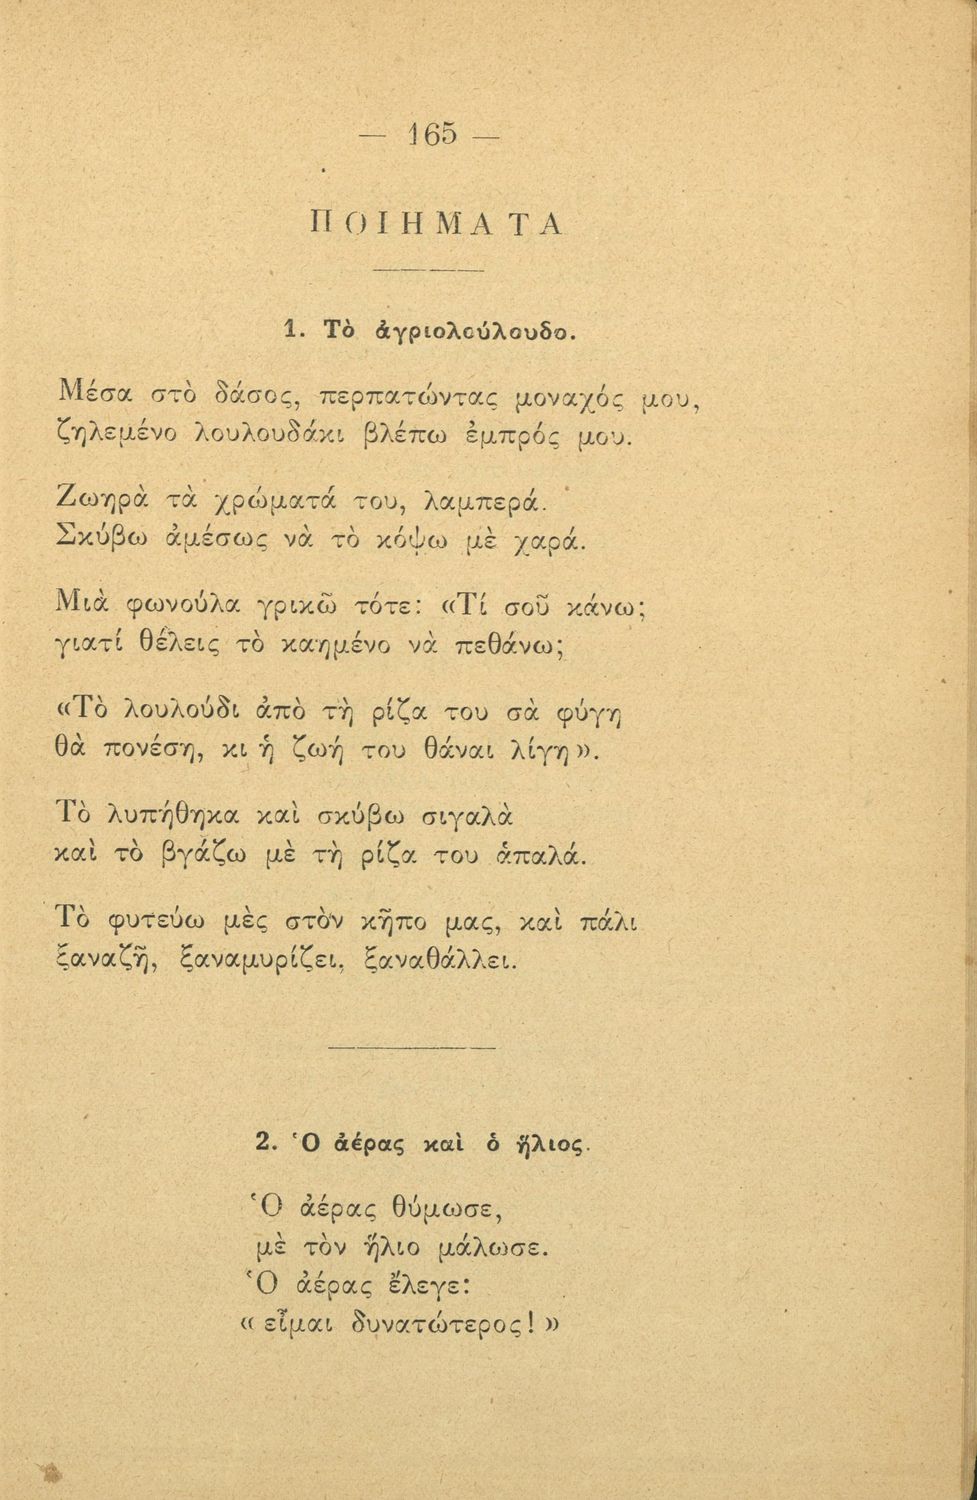 — 165 —
ΠΟΙΗΜΑΤΑ
1. Τὸ ἀγριολούλουδο.
Μέσα στὸ δάσος, περπατώντας μοναχός μου,
ζηλεμένο λουλουδάκι βλέπω ἐμπρός μου.
Ζωηρὰ τὰ χρώματά του, λαμπερά.
Σκύβω ἀμέσως νὰ τὸ κόψω μὲ χαρά.
Μιὰ φωνούλα γρικῶ τότε: «Τί σοῦ κάνω;
γιατί θέλεις τὸ καημένο νὰ πεθάνω;
«Τὸ λουλούδι ἀπὸ τὴ ρίζα του σὰ φύγη
θὰ πονέση, κι ἡ ζωή του θάναι λίγη».
Τὸ λυπήθηκα καὶ σκύβω σιγαλὰ
καὶ τὸ βγάζω μὲ τὴ ρίζα του ἁπαλά.
Τὸ φυτεύω μὲς στὸν κῆπο μας, καὶ πάλι
ξαναζῆ, ξαναμυρίζει, ξαναθάλλει.
2. Ὁ ἀέρας καὶ ὁ ἥλιος.
Ὁ ἀέρας θύμωσε,
μὲ τὸν ἥλιο μάλωσε.
Ὁ ἀέρας ἔλεγε:
« εἶμαι δυνατώτερος! »